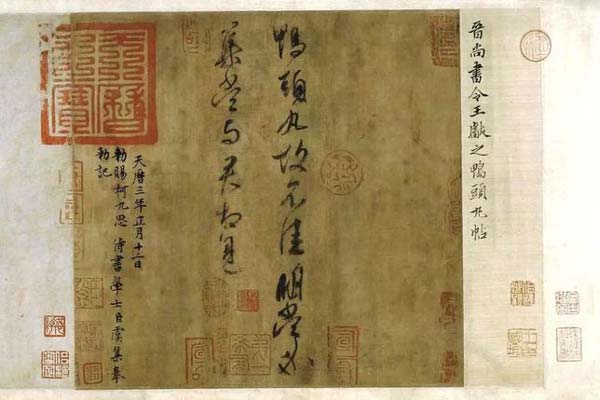 晉尚書令王獻之鴨頭丸帖
鴨頭丸故不佳明當必
集當与君相見
天曆三年正月十二日
勅賜柯九思 侍書學士臣虞集奉
勅記
天曆之寶